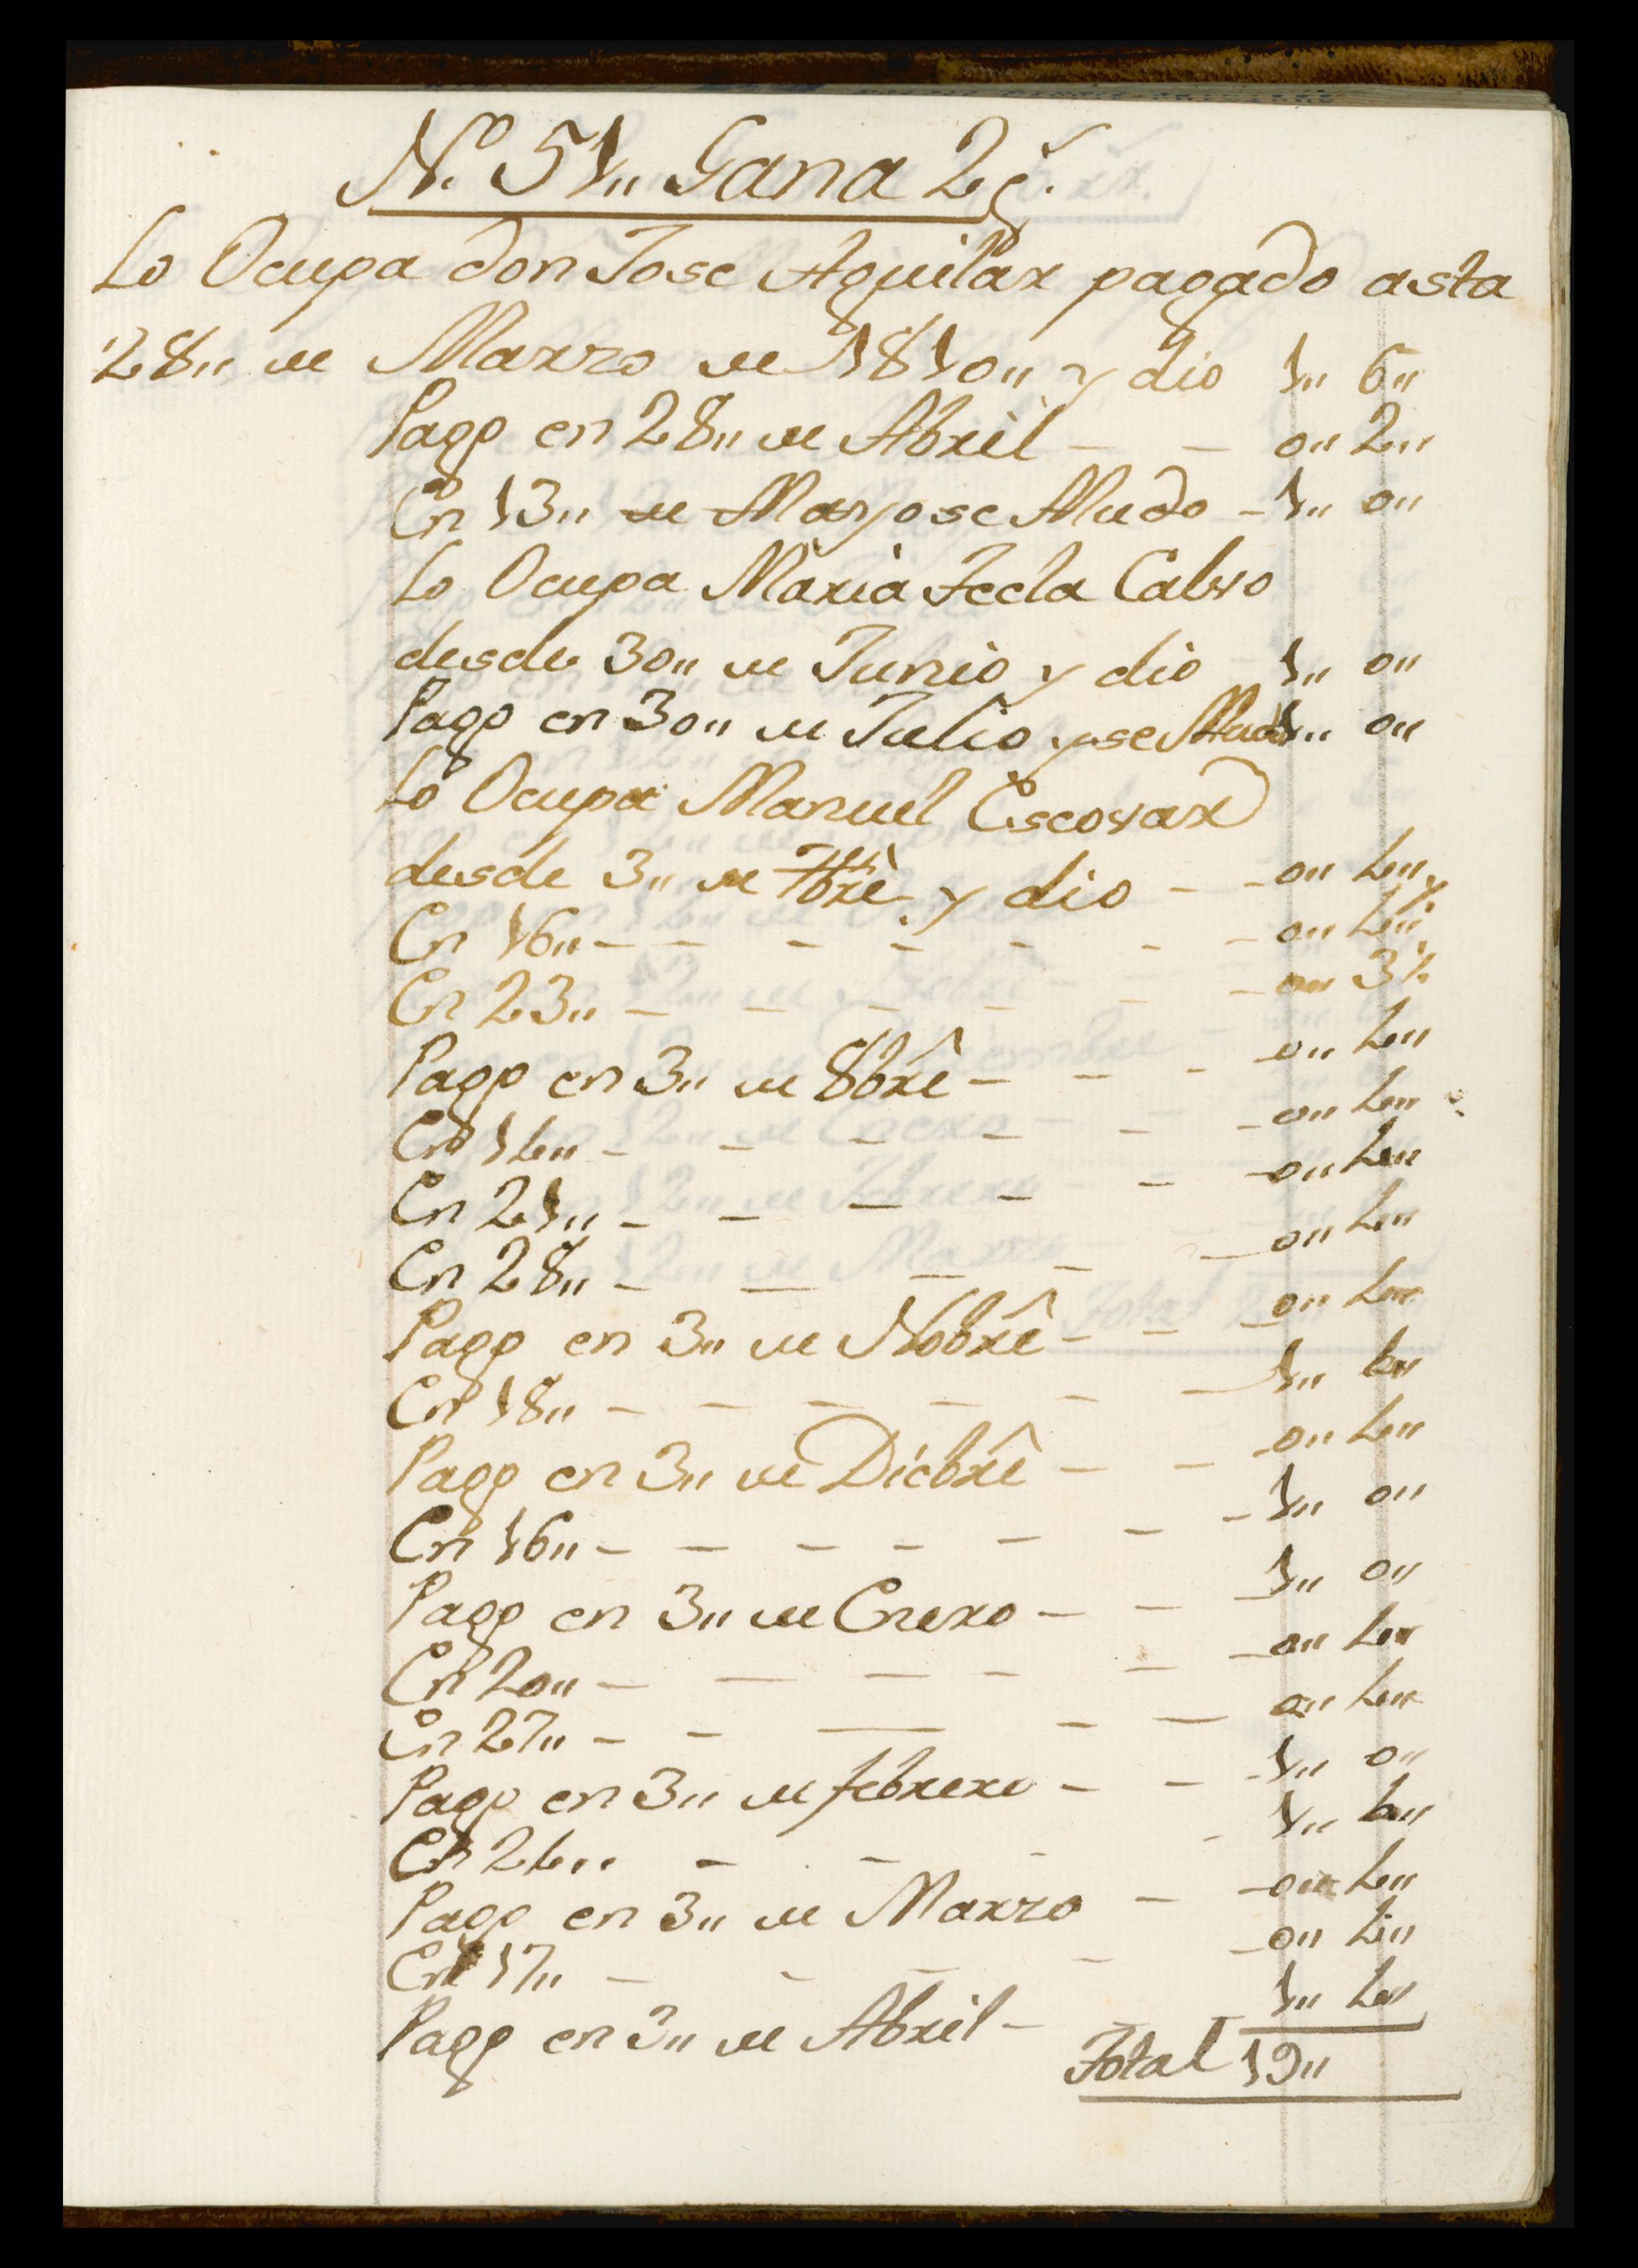 Nº. 51,, Gana 2 p.
Lo Ocupa don Jose Aguilar pagado asta
28,, de Marzo de 1810,, y dio 1,, 6,,
Pago en 28,, de Abril - - 0,, 2,,
En 13,, de Mayo se Mudo - 1,, 0,,
Lo Ocupa Maria Tecla Calvo
desde 30,, de Junio y dio 1,, 0,,
Pago en 30,, de Julio y se Mudo 1,, 0,,
Lo Ocupa Manuel Escovar
desde 3,, de 7bre. y dio - - 0,, 4,,
En 16,, - - - - - - - 0,, 4,,
En 23,, - - - - - - 0,, 3½
Pago en 3,, de 8bre - - - 0,, 4,,
En 14,, - - - - - - 0,, 4,,
En 21,, - - - - - - 0,, 4,,
En 28,, - - - - - 0,, 4,,
Pago en 3,, de Nobre - - - 0,, 4,,
En 18,, - - - - - - 1,,
Pago en 3,, de Dicbre - - 0,, 4,,
En 16,, - - - - - - - 1,, 0,,
Pago en 3,, de Enero - - - 1,, 0,,
En 20,, - - - - - - 0,, 4,,
En 27,, - - - - - 0,, 4,,
Pago en 3,, de febrero - - - 1,, 0,,
En 24,, - - - - 1,,
Pago en 3,, de Marzo - - 0,, 4,,
En 17,, - - - - - 0,, 4,,
Pago en 3,, de Abril - - 1,, 4,,
Total 19,,